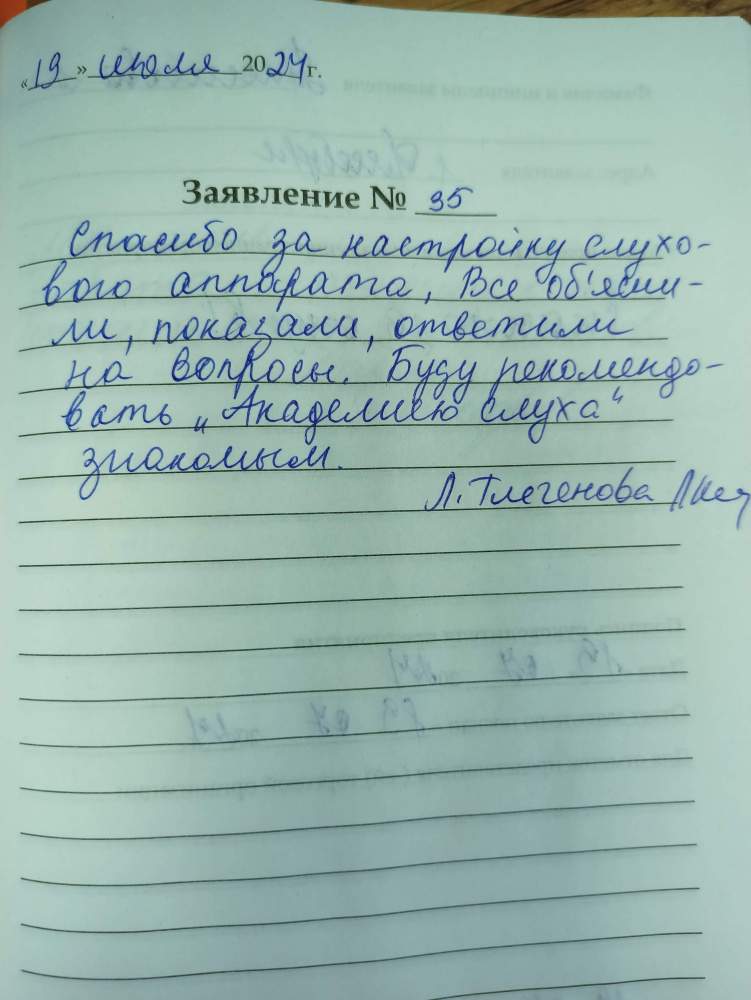 «19» июля 2024г.
Заявление № 35
Спасибо за настройку слухо-
вого аппарата, Все об'ясни-
ли, показали, ответили
на вопросы. Буду рекомендо-
вать „Академию слуха“
знакомым.
Л. Тлегенова